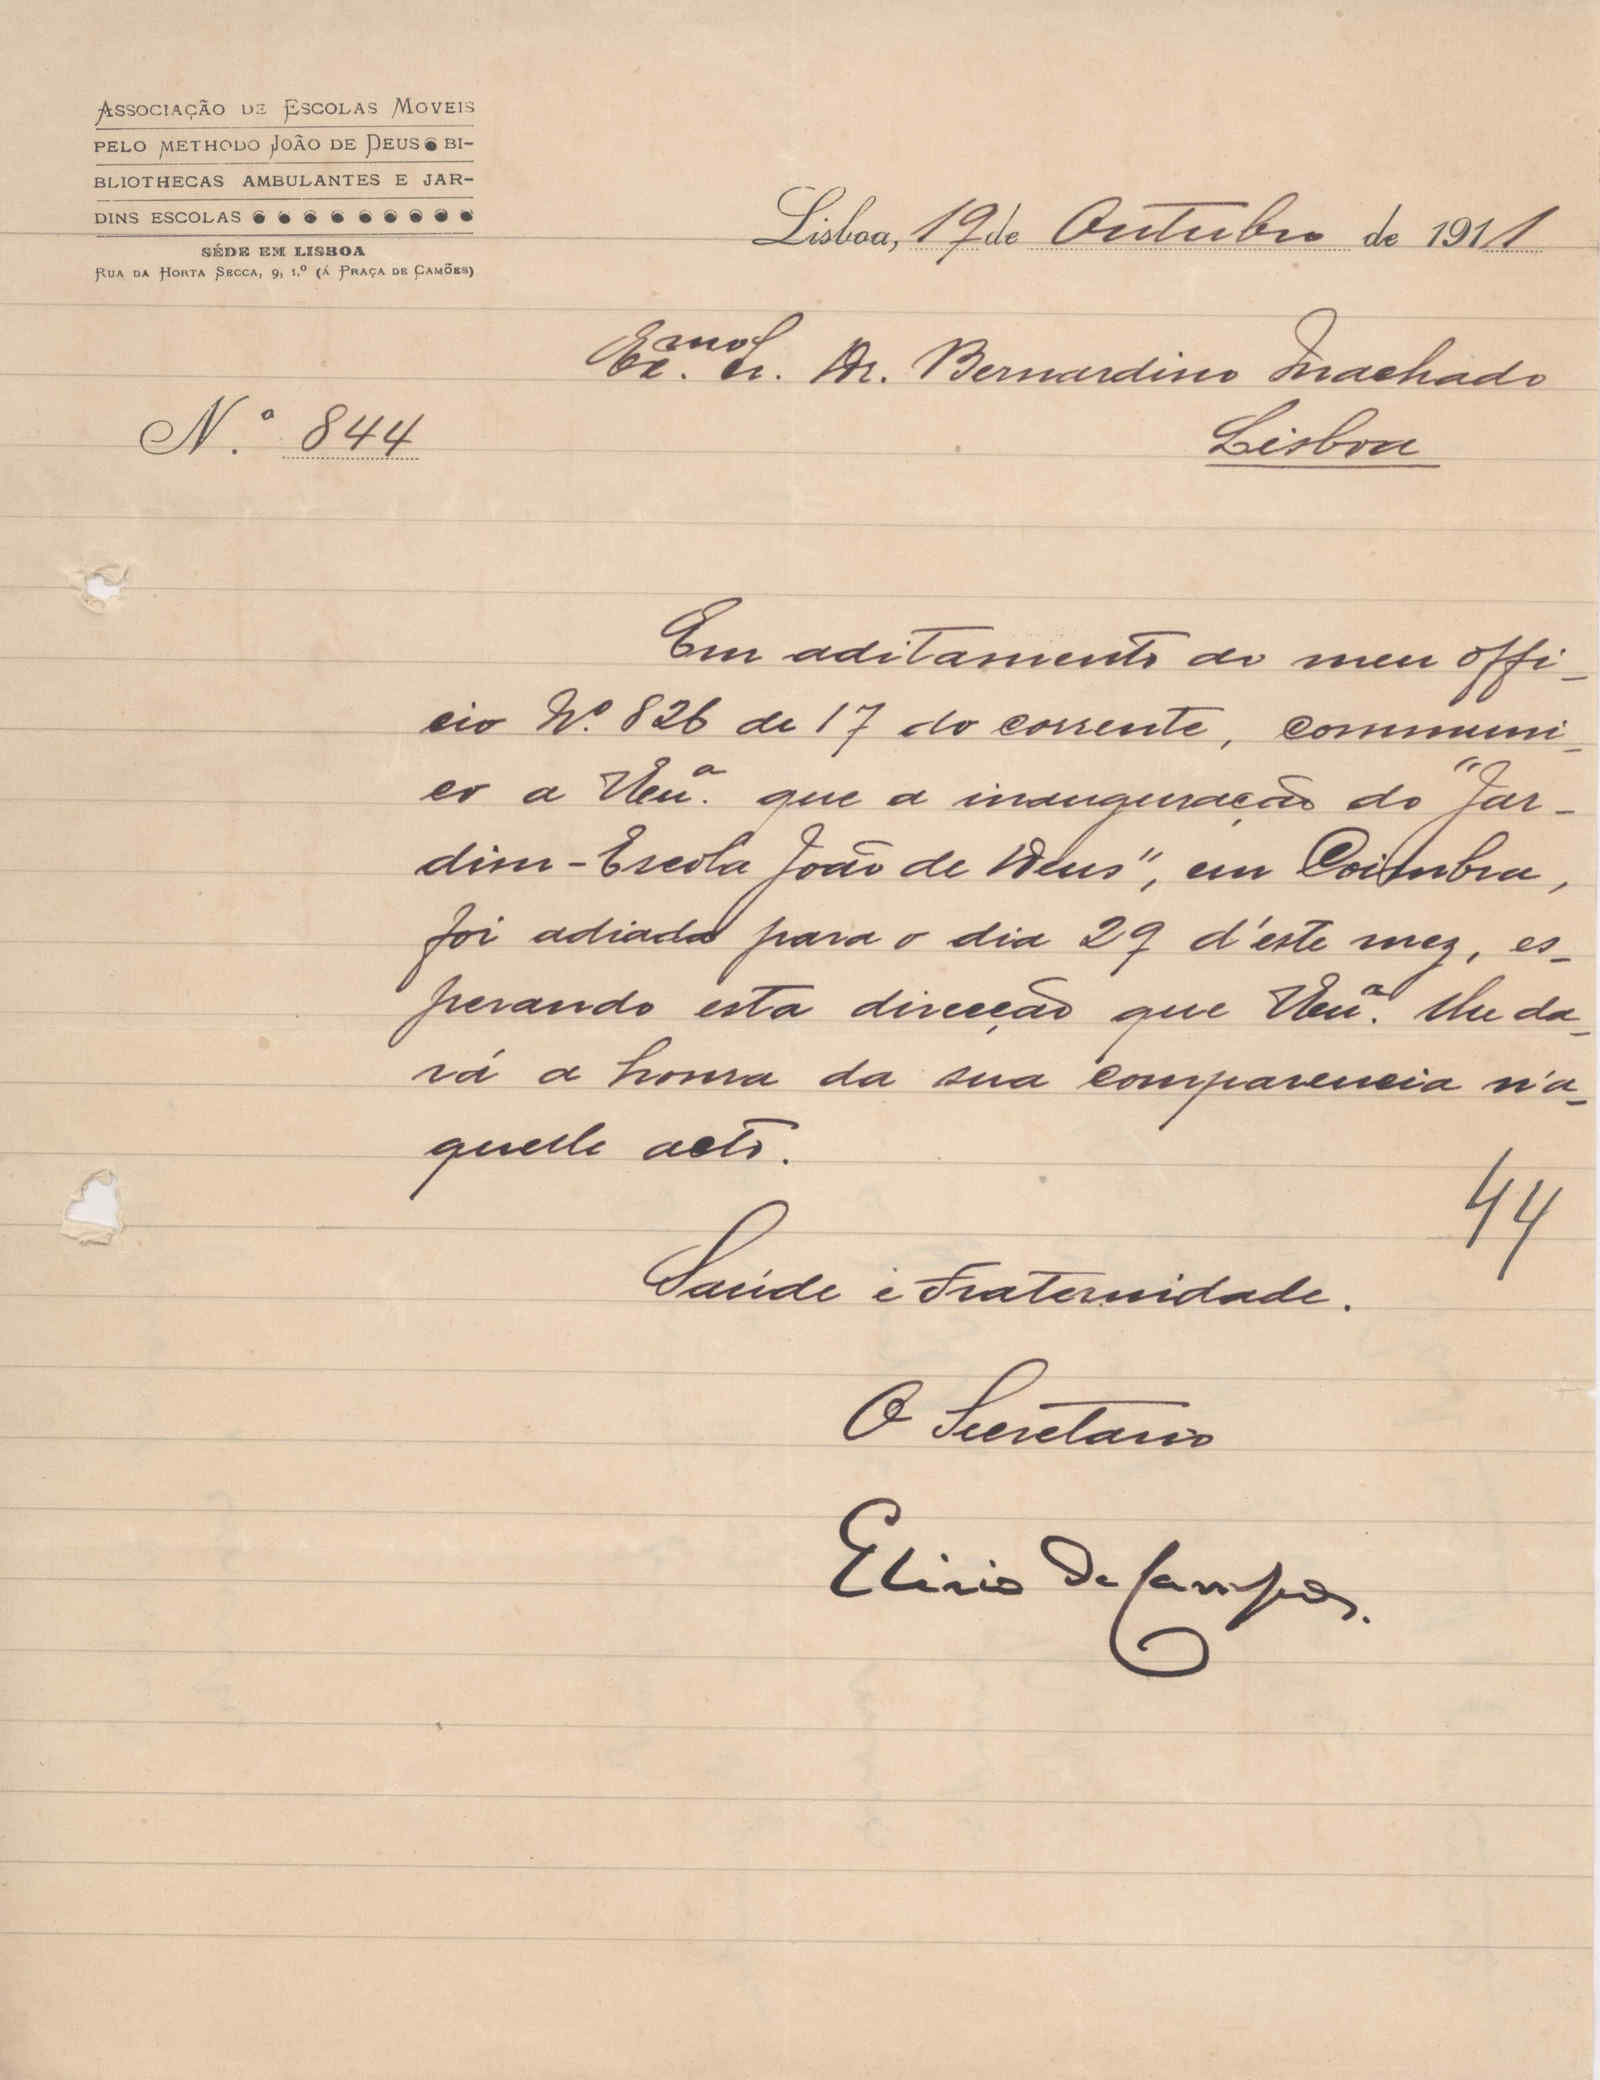 ASSOCIAÇÃO DE ESCOLAS MOVEIS
PELO METHODO JOÃO DE DEUS ● BI-
BLIOTHECAS AMBULANTES E JAR-
DINS ESCOLAS ● ● ● ● ● ● ● ● ●
SÉDE EM LISBOA
RUA DA HORTA SECCA, 9, 1.º (Á PRAÇA DE CAMÕES)
Lisboa, 19 de Outubro de 1911
Ex.mo Sr. Dr. Bernardino Machado
Lisboa
N.º 844
Em aditamento ao meu offi-
cio Nº. 826 de 17 do corrente, communi-
co a V.Exª. que a inauguração do "Jar-
dim-Escola João de Deus", em Coimbra,
foi adiada para o dia 29 d'éste mez, es-
perando esta direcção que V.Exª. lhe da-
rá a honra da sua comparencia n'a-
quelle acto.
44
Saúde e Fraternidade.
O Secretario
Elirio de Campos.